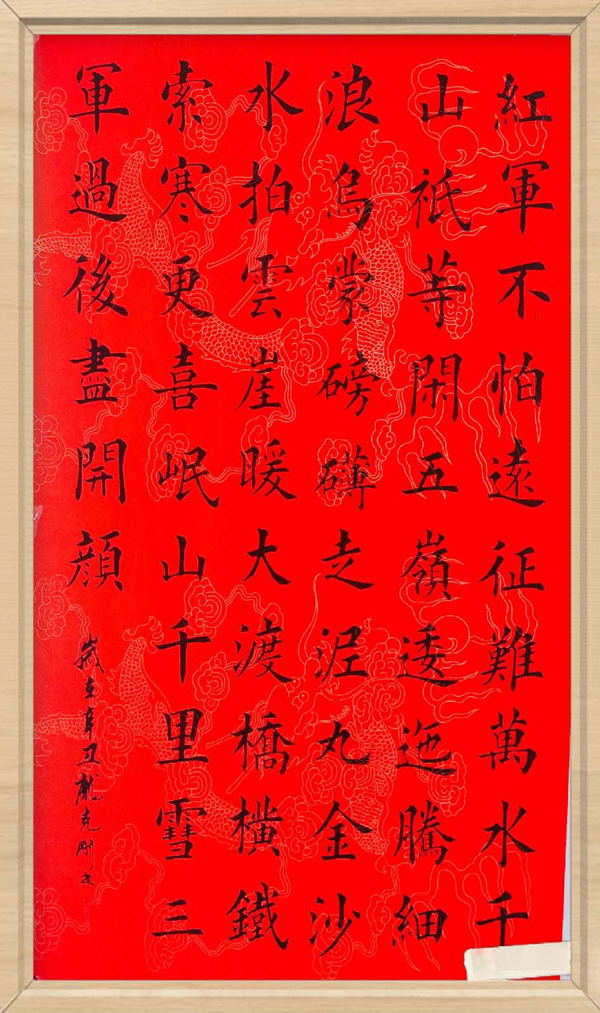 紅軍不怕遠征難萬水千
山祗等閑五嶺逶迤騰細
浪烏蒙磅礴走泥丸金沙
水拍雲崖暖大渡橋橫鐵
索寒更喜岷山千里雪三
軍過後盡開顔
歲在辛丑龍克剛書